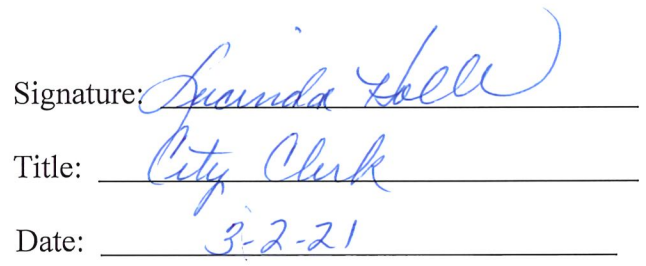 Signature: Lucinda Holle
Title: City Clerk
Date: 3-2-21